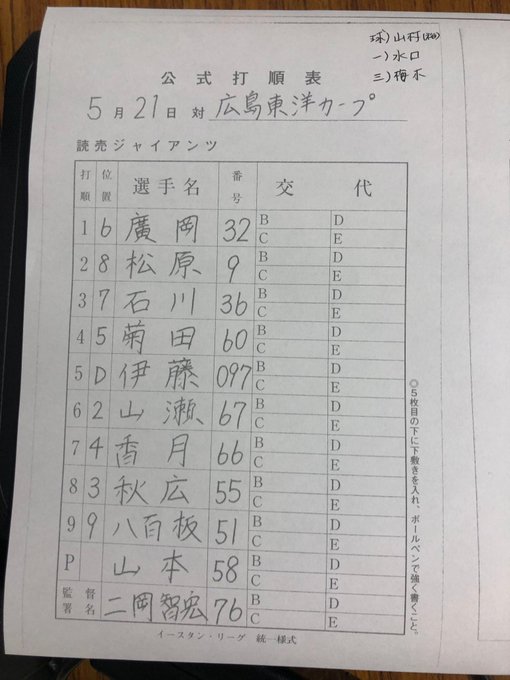 球)山村(裕)
一)水口
三)梅木
公式打順表
5月21日 対 広島東洋カープ
読売ジャイアンツ
打順 位置 選手名 番号 交代
1 6 廣岡 32 B D
C E
2 8 松原 9 B D
C E
3 7 石川 36 B D
C E
4 5 菊田 60 B D
C E
5 D 伊藤 097 B D
C E
6 2 山瀬 67 B D
C E
7 4 香月 66 B D
C E
8 3 秋広 55 B D
C E
9 9 八百板 51 B D
C E
P 山本 58 B D
C E
監督署名 二岡智宏 76 B D
C E
イースタン・リーグ 統一様式
◎5枚目の下に下敷きを入れ、ボールペンで強く書くこと。